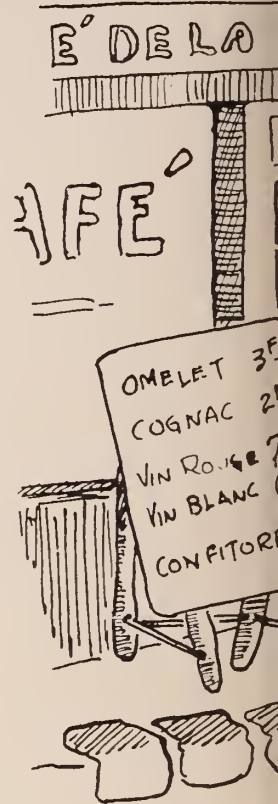 É DE LA
AFÉ
OMELET 3F
COGNAC 2
VIN ROUGE 7
VIN BLANC
CONFITORE